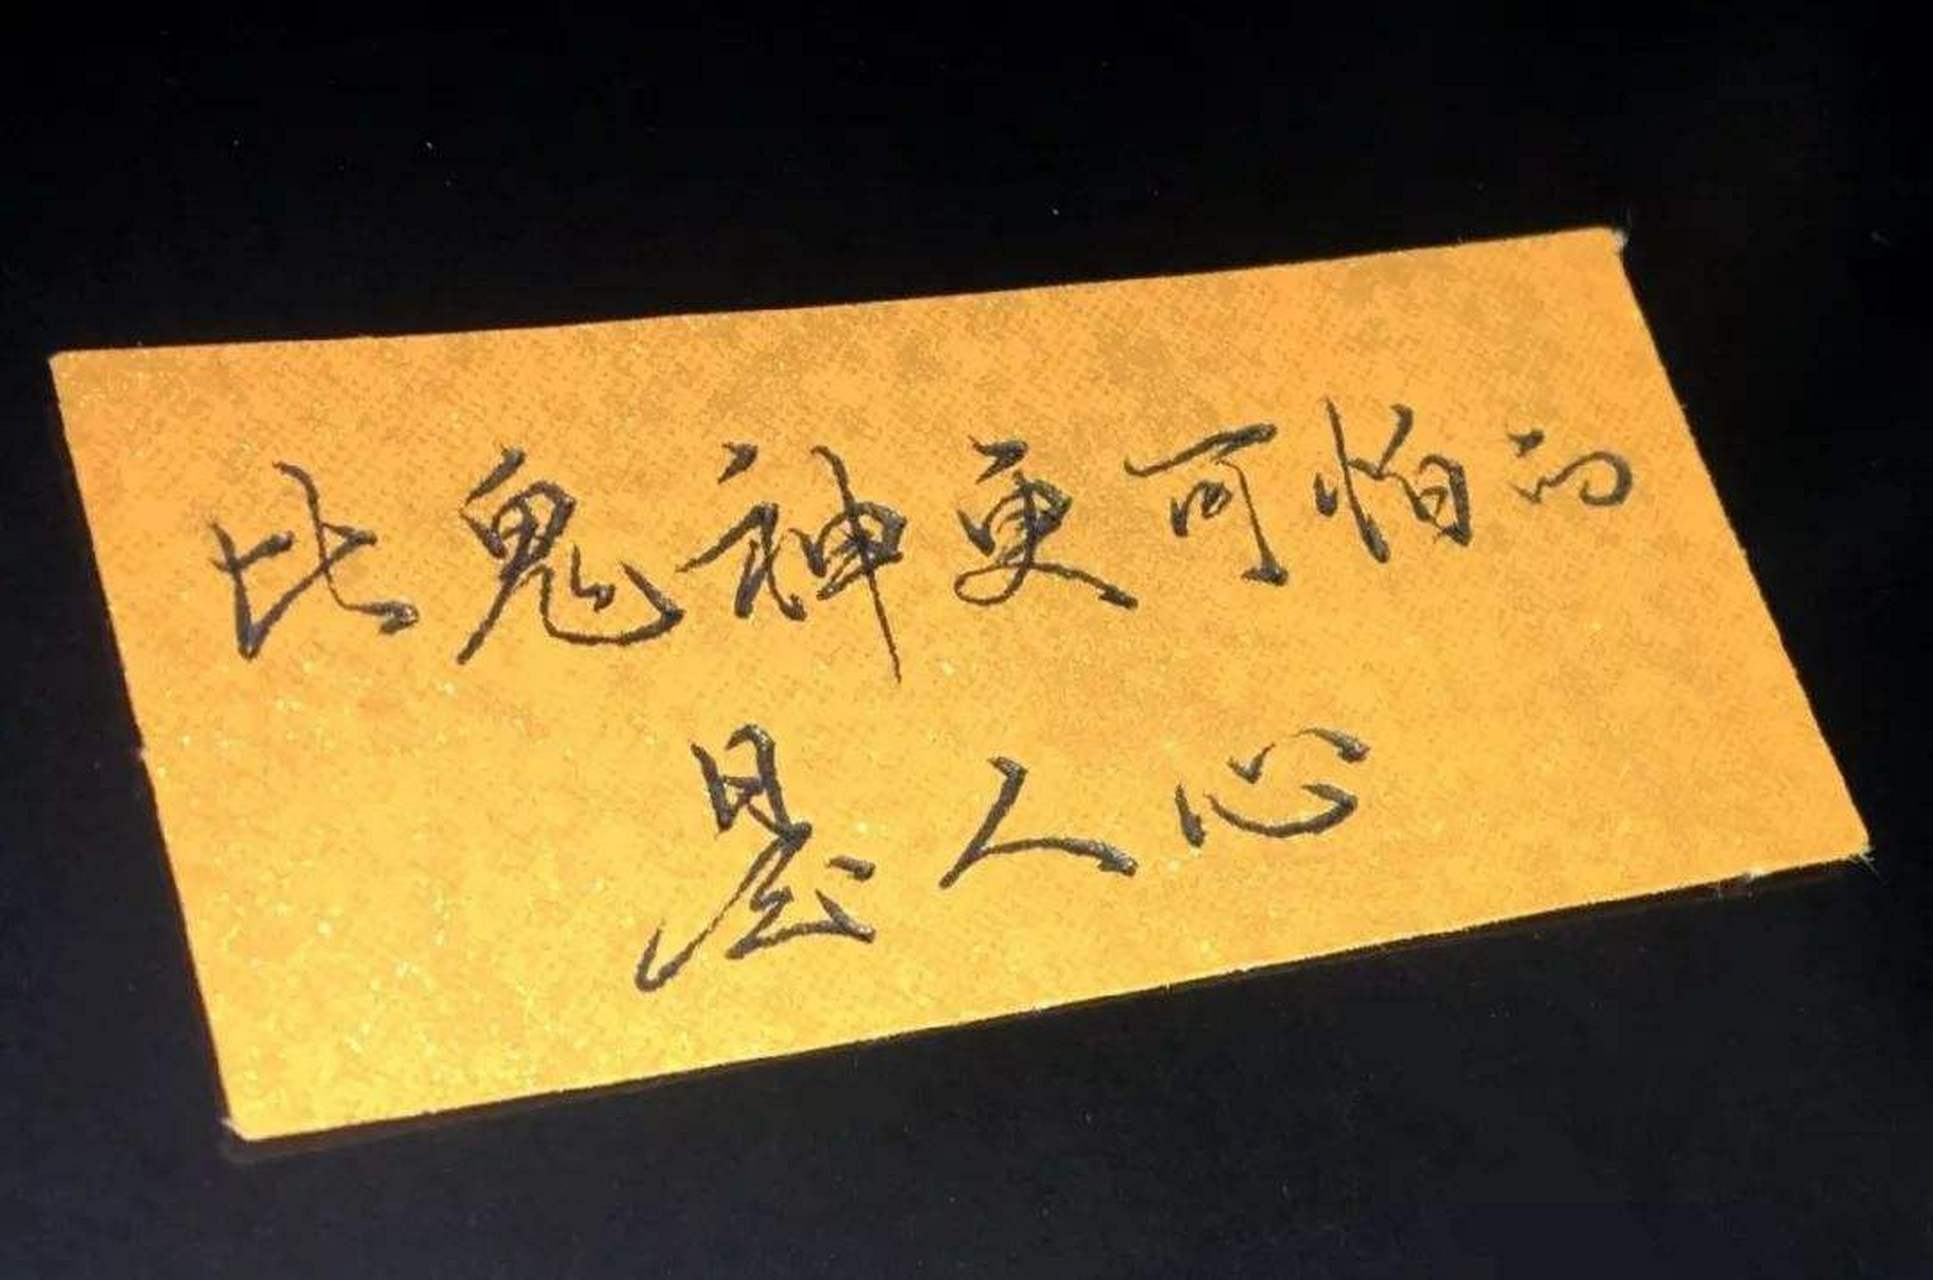 比鬼神更可怕的
是人心